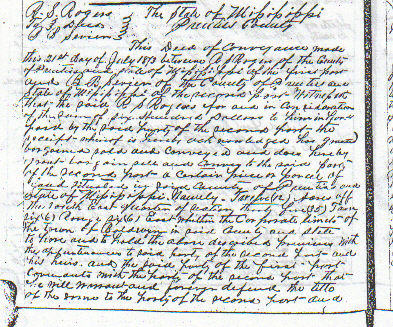 The State of Mississippi
Prentiss County
This Deed of Conveyance made
this 21st Day of July 1873 between
of the County
of Prentiss and State of Mississippi of the first part
and of the County of Prentiss and
State of Mississippi of the second part Witnesseth
that the said Rogers for and in Consideration
of the sum of Six Hundred Dollars to him in hand
paid by the said party of the second part the
receipt whereof is hereby acknowledged has
bargained sold and Conveyed and does hereby
grant bargain sell and Convey to the said party
of the second part a certain piece or parcel of
Land situated in said County of Prentiss and
State of Mississippi Acres off
the North East
six (6) Range six (6) East within the Corporate limits of
the town of in said County and State
to have and to hold the above described premises with
the appurtenances to said party of the second part and
his heirs and the said party of the first part
Covenants with the party of the second part that
he will warrant and forever defend the title
of the same to the party of the second part and